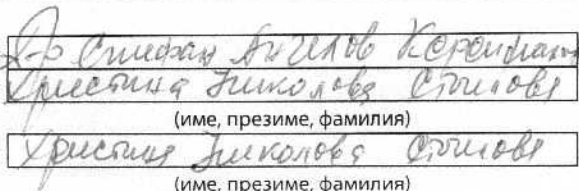 Д-р Стефан Ангелов
Христина Николова Стоилова
(име, презиме, фамилия)
Христина Николова Стоилова
(име, презиме, фамилия)